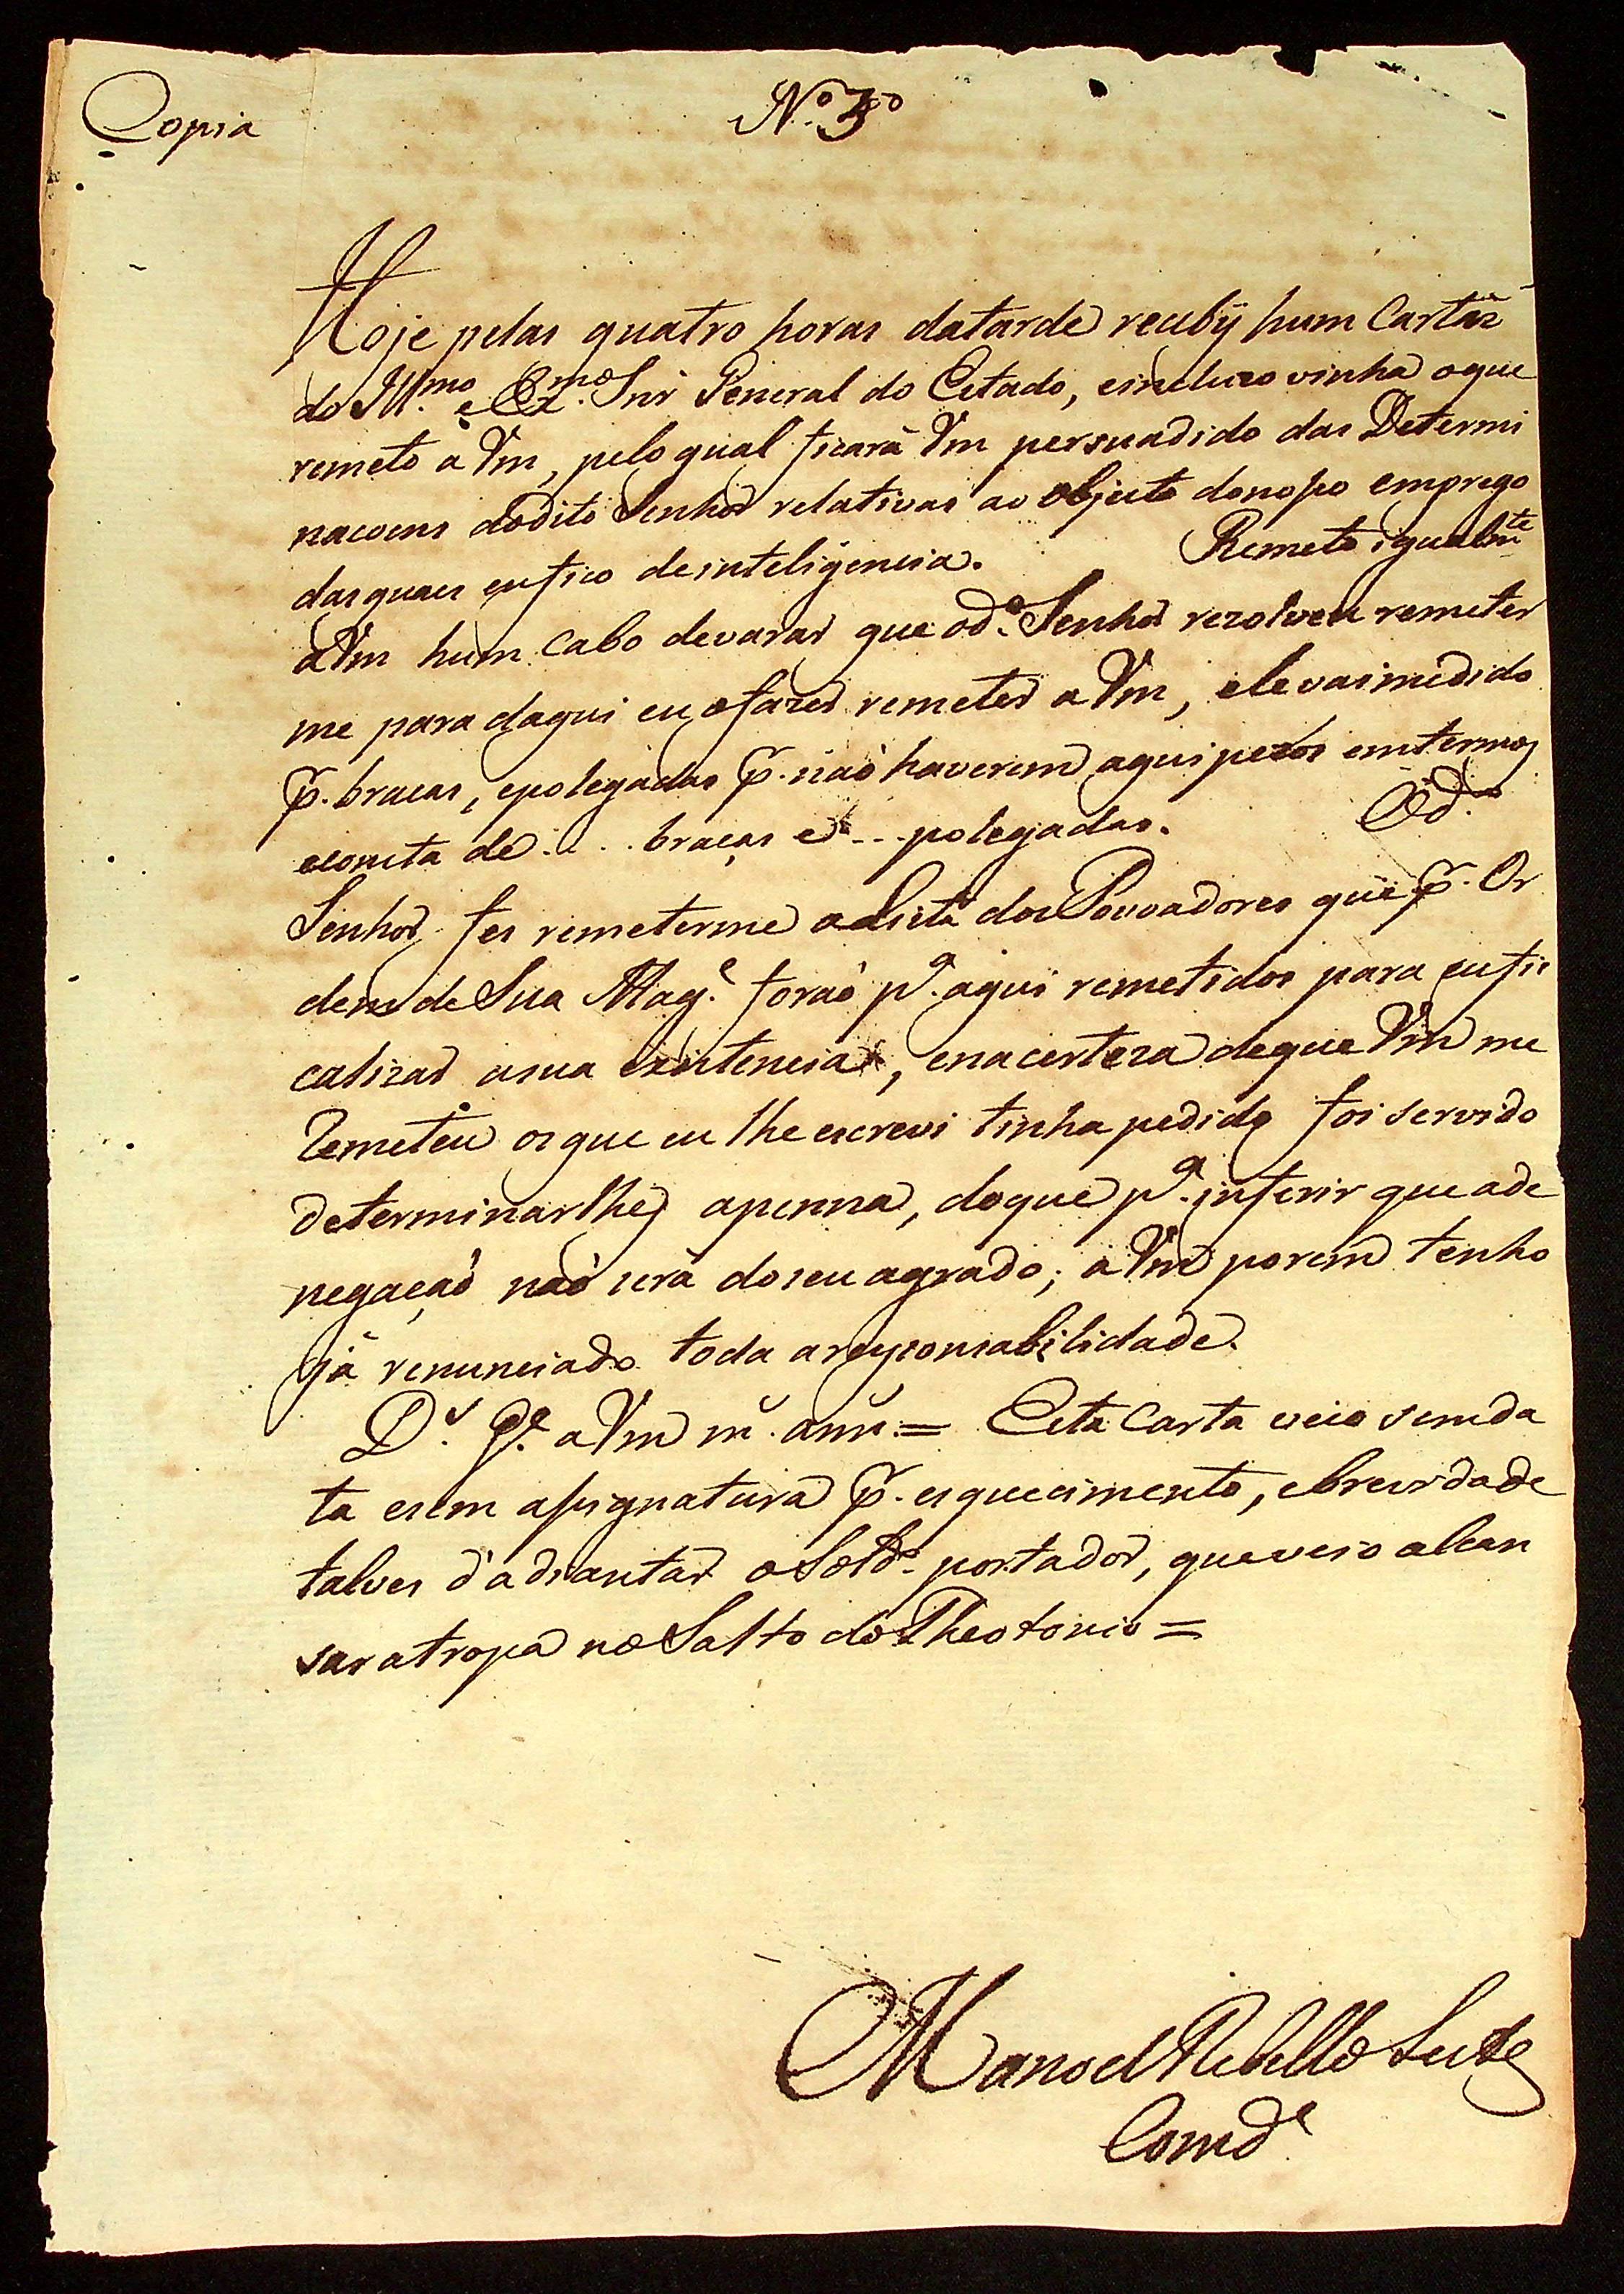 Copia
N.º 3º
Hoje pelas quatro horas datarde recuby hum Cartaz
do Ill.mo e Ex.mo Snr General do Estado, eincluzo vinha oque
remeto a Vm, pelo qual ficará Vm persuadido das Determi
nacoens dodito Senhor relativas ao objecto donosso emprego
dasquaes eu fico deinteligencia. Remeto igualm.te
aVm hum Cabo devarar que od.º Senhor rezolveu remeter
me para daqui eu ofazer remeter a Vm, elevaimedido
p. bracas, epolegadas p. naõ haverem aqui pezos emtermos
econsta de . . . braças e . . . polegadas. Od.º
Senhor fes remeterme aLista dos Povoadores que p. Or
dem de Sua Mag.e foraõ p.a aqui remetidos para eu fis
calizar asua existencia, enacerteza deque Vm me
Remeteu osque eu lhe escrevi tinha pedido foi servido
determinarlhes apenna, doque p.a inferir que ade
negaçaõ naõ será doseu agrado; a Vm porem tenho
já renunciado toda aresponsabilidade.
D.s g.e aVm m. ann. = Esta Carta veio semda
ta esem assignatura p. esquecimento, ebrevidade
talves d'adiantar o Sold.º portador, queveio alcan
sar atropa no Salto do Theotonio =
Manoel Rebello Leite
Comd.e